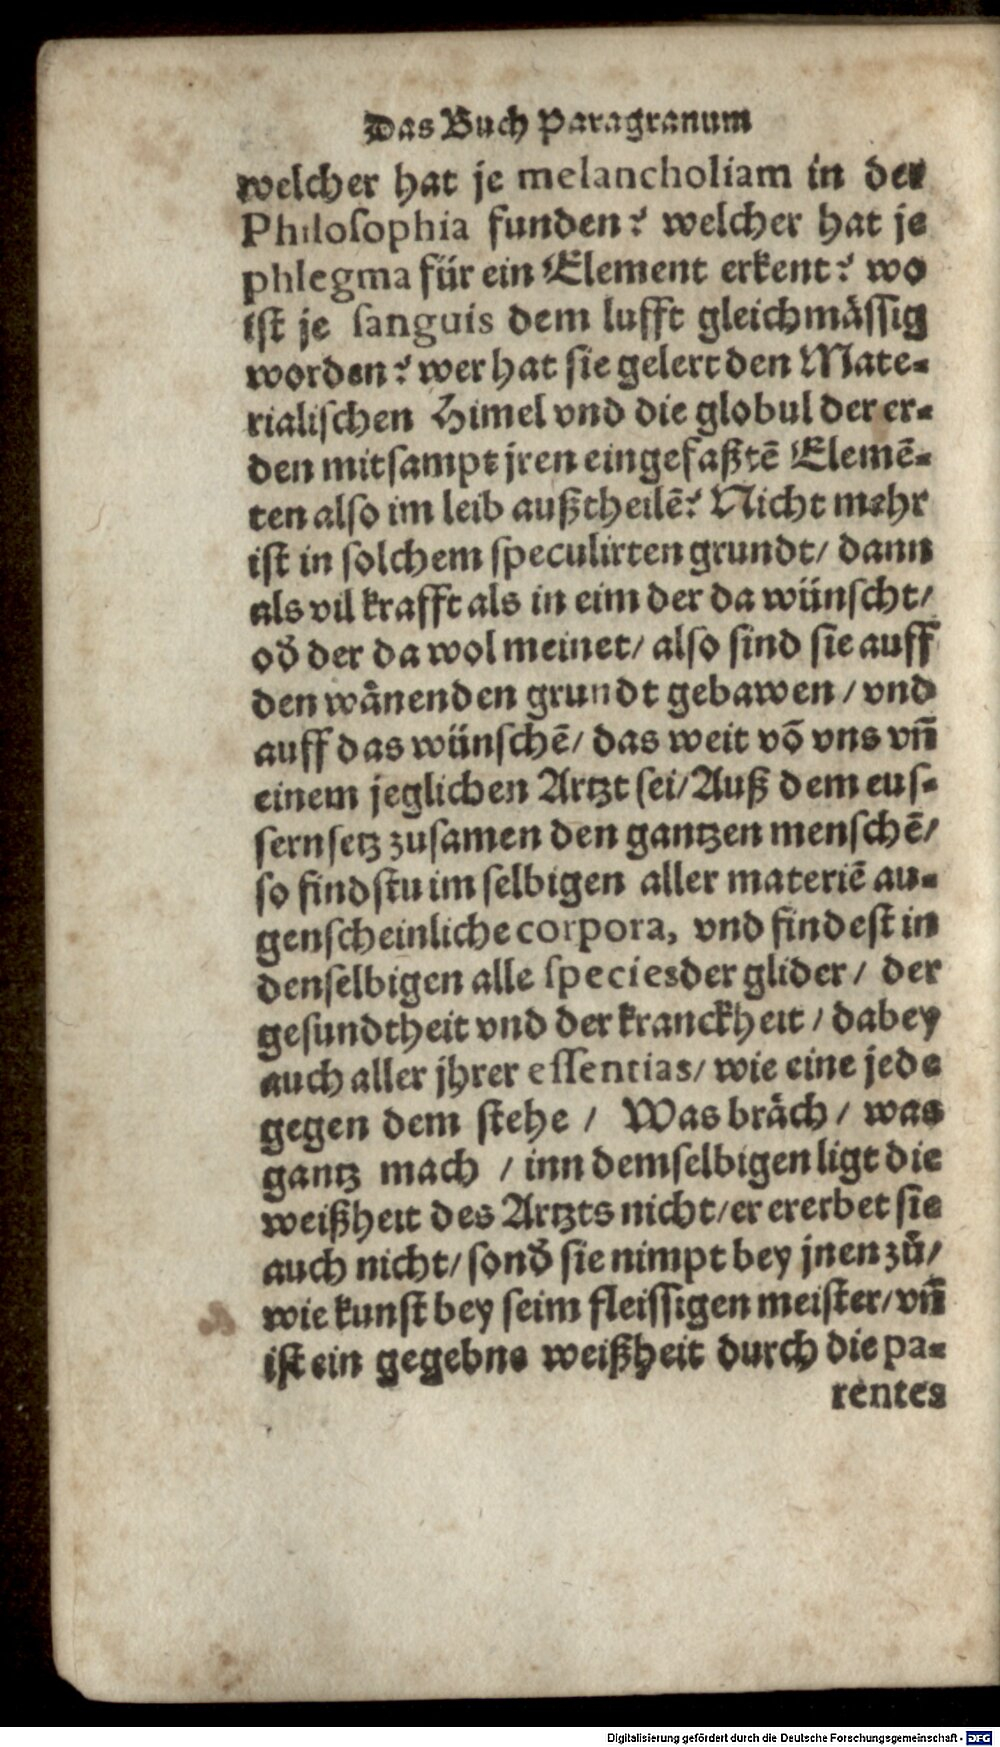 Das Buch Paragranum
welcher hat je melancholiam in der
Philoſophia funden? welcher hat je
phlegma für ein Element erkent? wo
iſt je ſanguis dem lufft gleichmäſſig
worden? wer hat ſie gelert den Mate-
rialiſchen Himel vnd die globul der er-
den mitſampt jren eingefaßtē Elemē-
ten alſo im leib außtheilē? Nicht mehr
iſt in ſolchem ſpeculirten grundt/ dann
als vil krafft als in eim der da wünſcht/
od̄ der da wol meinet/ alſo ſind ſie auff
den wänenden grundt gebawen/ vnd
auff das wünſchē/ das weit vō vns vn̄
einem jeglichen Artzt ſei/ Auß dem euſ-
ſern ſetz zuſamen den gantzen menſchē/
ſo findſtu im ſelbigen aller materiē au-
genſcheinliche corpora, vnd findeſt in
denſelbigen alle ſpecies der glider/ der
geſundtheit vnd der kranckheit/ dabey
auch aller jhrer eſſentias/ wie eine jede
gegen dem ſtehe/ Was bräch/ was
gantz mach/ inn demſelbigen ligt die
weißheit des Artzts nicht/ er ererbet ſie
auch nicht/ ſond̄ ſie nimpt bey jnen zů/
wie kunſt bey ſeim fleiſſigen meiſter/ vn̄
iſt ein gegebne weißheit durch die pa-
rentes
Digitalisierung gefördert durch die Deutsche Forschungsgemeinschaft - DFG